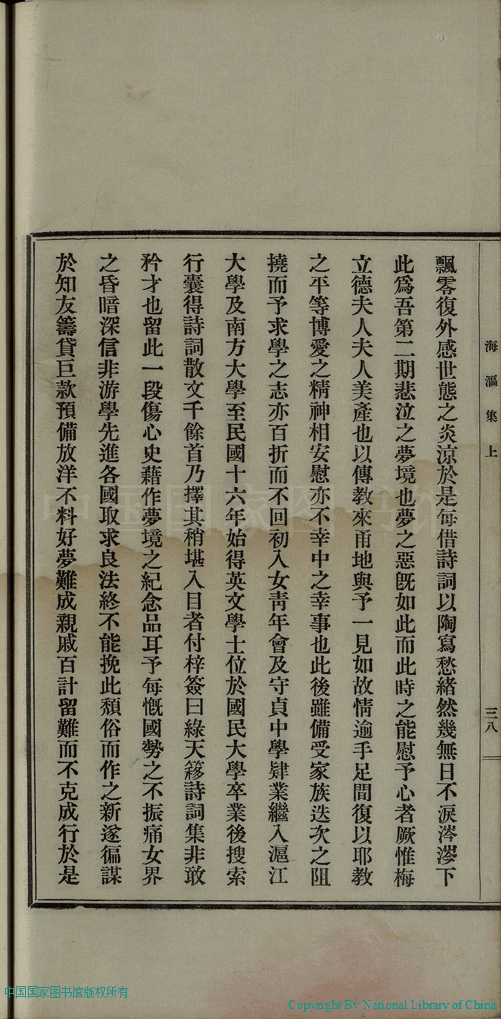 海漚集上
三八
飄零復外感世態之炎涼於是每借詩詞以陶寫愁緒然幾無日不淚涔涔下
此爲吾第二期悲泣之夢境也夢之惡旣如此而此時之能慰予心者厥惟梅
立德夫人夫人美產也以傳教來甬地與予一見如故情逾手足間復以耶教
之平等博愛之精神相安慰亦不幸中之幸事也此後雖備受家族迭次之阻
撓而予求學之志亦百折而不回初入女靑年會及守貞中學肄業繼入滬江
大學及南方大學至民國十六年始得英文學士位於國民大學卒業後搜索
行囊得詩詞散文千餘首乃擇其稍堪入目者付梓簽曰綠天簃詩詞集非敢
矜才也留此一段傷心史藉作夢境之紀念品耳予每慨國勢之不振痛女界
之昏暗深信非游學先進各國取求良法終不能挽此頹俗而作之新遂徧謀
於知友籌貸巨款預備放洋不料好夢難成親戚百計留難而不克成行於是
中国国家图书馆
中国国家图书馆版权所有
Copyright By National Library of China